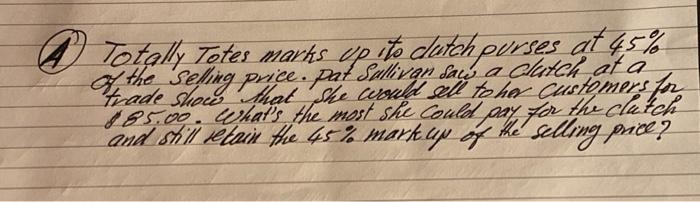 A) Totally Totes marks up its clutch purses at 45%
of the selling price. Pat Sullivan saw a clutch at a
trade show that she would sell to her customers for
$85.00. What's the most she could pay for the clutch
and still retain the 45% markup of the selling price?